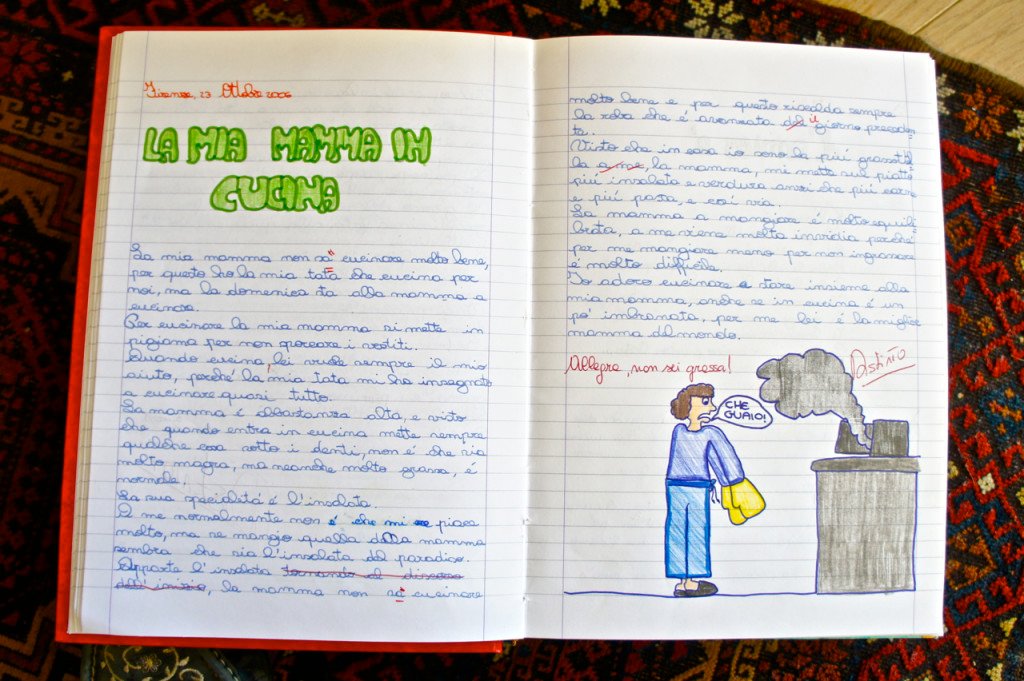 Firenze, 23 Ottobre 2006
LA MIA MAMMA IN
CUCINA
La mia mamma non sà cucinare molto bene,
per questo ho la mia tata che cucina per
noi, ma la domenica sta alla mamma a
cucinare.
Per cucinare la mia mamma si mette in
pigiama per non sporcare i vestiti.
Quando cucina, lei vuole sempre il mio
aiuto, perché la mia tata mi ha insegnato
a cucinare quasi tutto.
La mamma è abbastanza alta, e visto
che quando entra in cucina mette sempre
qualche cosa sotto i denti, non è che sia
molto magra, ma neanche molto grassa, è
normale.
La sua specialetà è l'insalata.
A me normalmente non è che mi piace
molto, ma se mangio quella della mamma
sembra che sia l'insalata del paradiso.
Apparte l'insalata tornando al discorso
dell'inizio, la mamma non sà cucinare
molto bene e per questo riscalda sempre
la roba che é avanzata del il giorno preceden
te.
Visto che in casa io sono la più grassotel
la a me, la mamma, mi mette sul piatto
più insalata e verdura anzi che più carne
e più pasta, e così via.
La mamma a mangiare è molto equili
brata, a me viene molta invidia perché
per me mangiare meno per non ingrassare
è molto difficile.
Io adoro cucinare e stare insieme alla
mia mamma, anche se in cucina é un
po' imbranata, per me lei é la miglior
mamma del mondo.
Allegra, non sei grassa!
Distinto
CHE
GUAIO!